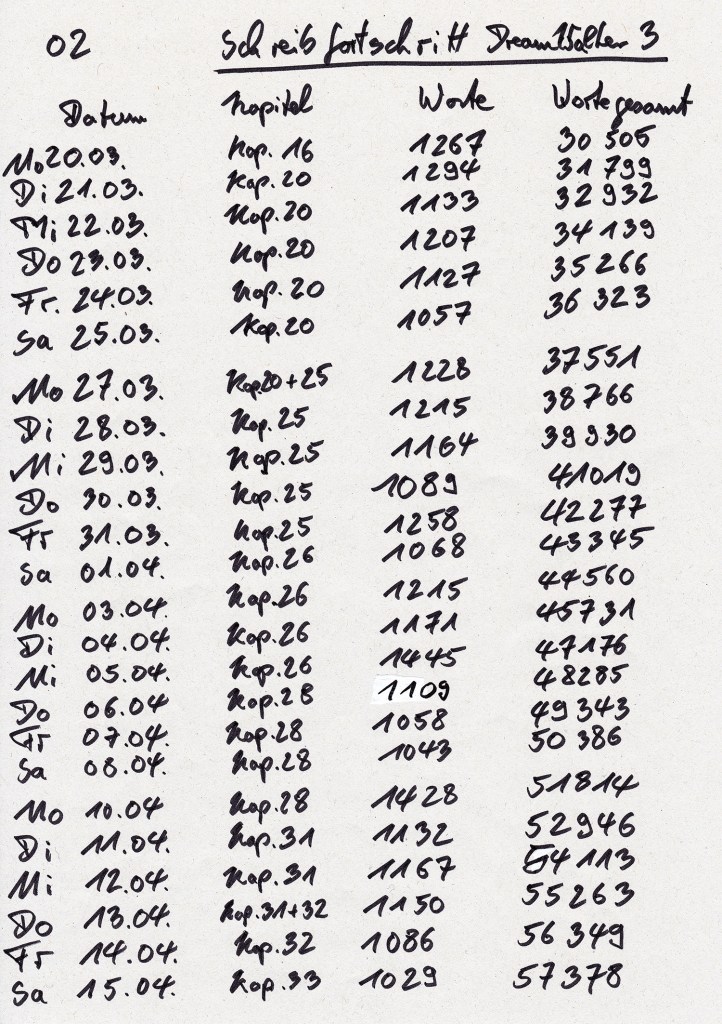 02 Schreibfortschritt DreamWalker 3
Datum Kapitel Worte Worte gesamt
Mo 20.03. Kap. 16 1267 30 505
Di 21.03. Kap. 20 1294 31 799
Mi 22.03. Kap. 20 1133 32 932
Do 23.03. Kap. 20 1207 34 139
Fr. 24.03. Kap. 20 1127 35 266
Sa 25.03. Kap. 20 1057 36 323
Mo 27.03. Kap 20 + 25 1228 37551
Di 28.03. Kap. 25 1215 38 766
Mi 29.03. Kap. 25 1164 39 930
Do 30.03. Kap. 25 1089 41019
Fr 31.03. Kap. 25 1258 42 277
Sa 01.04. Kap. 26 1068 43345
Mo 03.04. Kap. 26 1215 44560
Di 04.04. Kap. 26 1171 45731
Mi 05.04. Kap. 26 1445 47176
Do 06.04 Kap. 28 1109 48285
Fr 07.04. Kap. 28 1058 49343
Sa 08.04. Kap. 28 1043 50 386
Mo 10.04 Kap. 28 1428 51814
Di 11.04. Kap. 31 1132 52946
Mi 12.04. Kap. 31 1167 54 113
Do 13.04. Kap. 31+32 1150 55263
Fr 14.04. Kap. 32 1086 56 349
Sa 15.04. Kap. 33 1029 57378